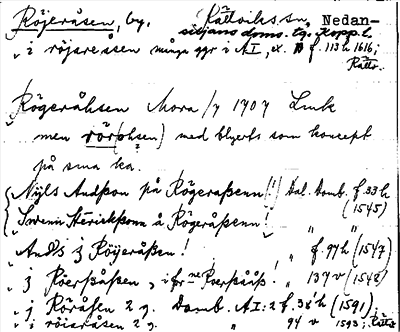 Röjeråsen, by. Rättviks sn, Nedan-
siljans doms. tg. Kopp. l.
" i röjeråssen många ggr i A I, f. 113 h 1616;
Rättv.
Rögeråhsen Mora 1707 Link
men rör(ohsen) med blyerts som koncept
på sma ka.
Nijls Andßon på Rögeraßenn (!) Dal. Domb. f. 33 h
(1545)
Swenin Hårickßonn å Rögeråßenn! " "
" Andß j Röyeråßen! " f. 99 h (1547)
" j Röerßåßen, " 137 v (1548)
" j Röråsen 2 g. Domb. A I: 2 f. 35 h (1591),
" i röisråsen 2 g. " 94 v 1593; Rättv.